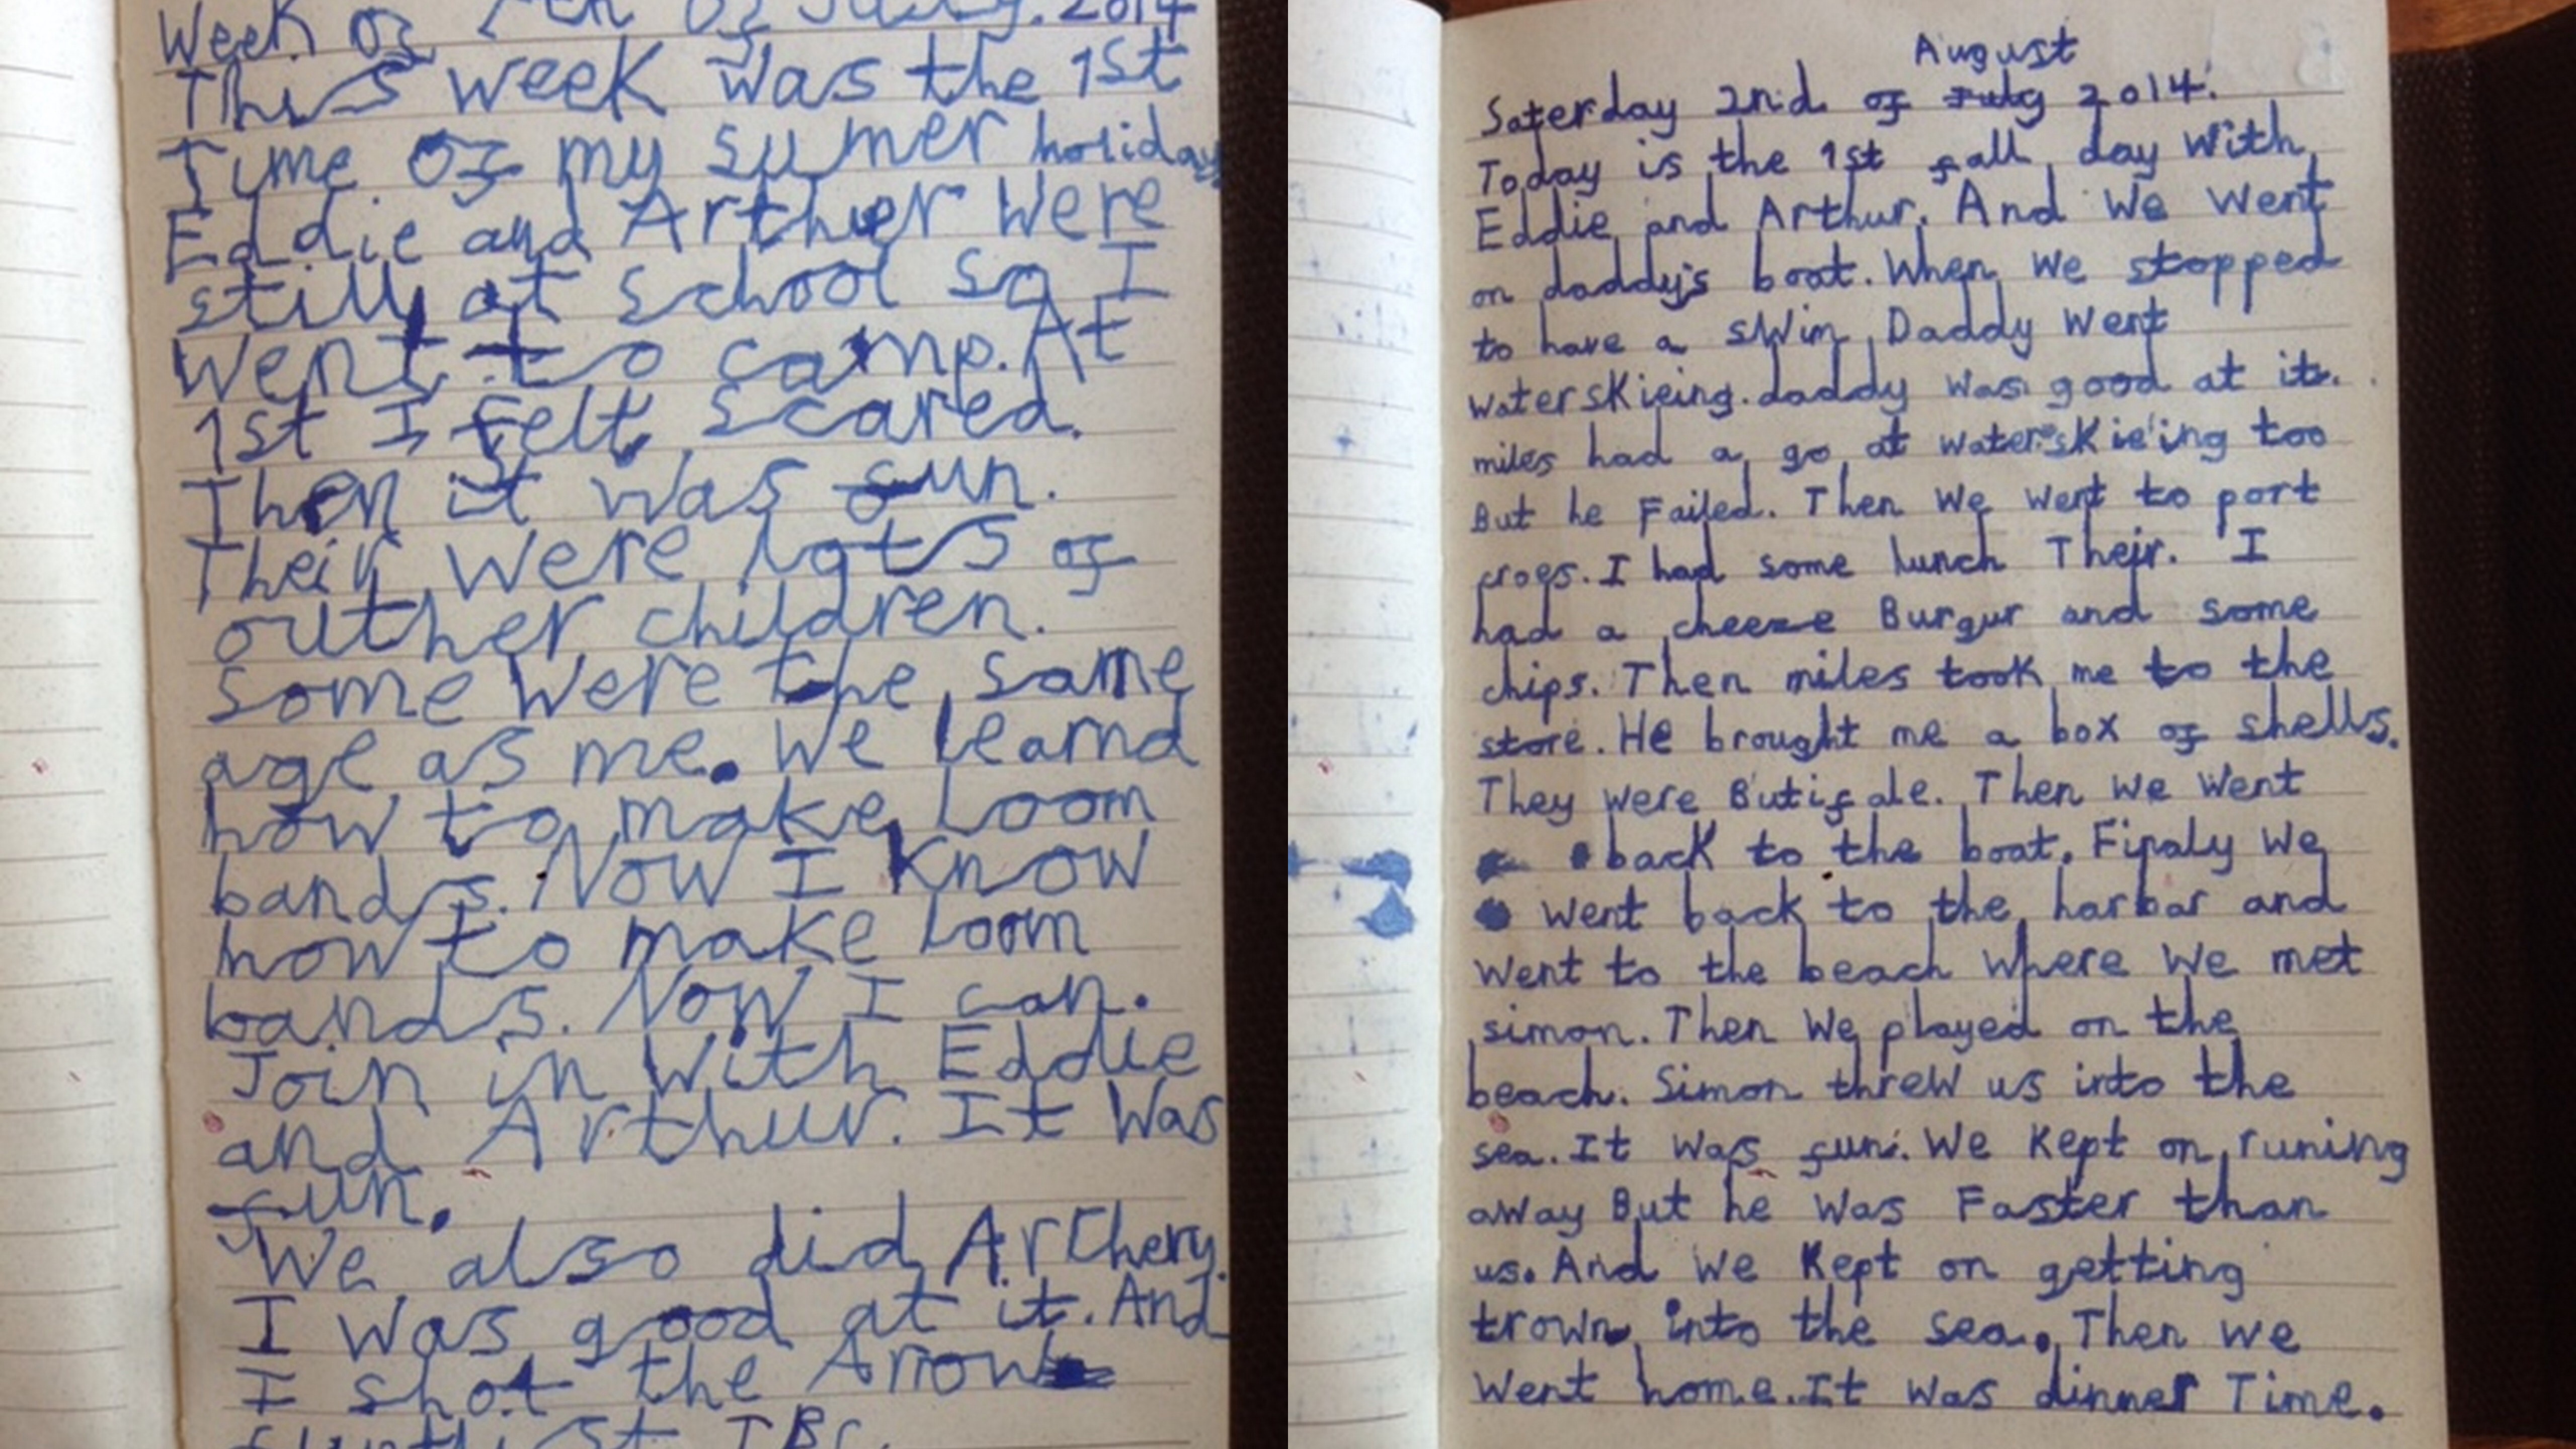 Week of 7th of July. 2014
This week was the 1st
Time of my sumer holiday
Eddie and Arthur were
still at school so I
went to camp. At
1st I felt scared.
Then it was fun.
Their were lots of
outher children.
some were the same
age as me. We learnd
how to make loom
bands. Now I Know
how to make loom
bands. Now I can.
Join in with Eddie
and Arthur. It was
fun.
We also did Arthery.
I was good at it. And
I shot the Arrow
August
Saterday 2nd of July 2014.
Today is the 1st fall day with
Eddie and Arthur. And We Went
on daddy's boat. When We stopped
to have a swim Daddy Went
waterskieing. daddy was good at it.
miles had a go at waterskie'ing too
But he Failed. Then We Went to port
croes. I had some lunch Their. I
had a cheeze Burgur and some
chips. Then miles took me to the
store. He brought me a box of shells.
They were Butifale. Then We Went
back to the boat. Finaly We
Went back to the harbar and
Went to the beach Where We met
simon. Then We played on the
beach. Simon threw us into the
sea. It was fun. We Kept on runing
away But he Was Faster than
us. And We Kept on getting
trown into the sea. Then We
Went home. It was dinner Time.